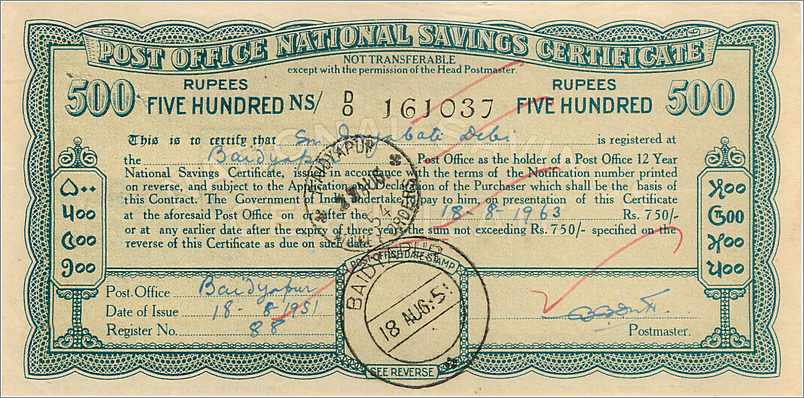 POST OFFICE NATIONAL SAVINGS CERTIFICATE
NOT TRANSFERABLE
except with the permission of the Head Postmaster.
RUPEES RUPEES
500 FIVE HUNDRED NS/ D/0 161037 FIVE HUNDRED 500
This is to certify that Sm. Debi is registered at
the Baidyapur Post Office as the holder of a Post Office 12 Year
National Savings Certificate, issued in accordance with the terms of the Notification number printed
on reverse, and subject to the Application and Declaration of the Purchaser which shall be the basis of
this Contract. The Government of India undertake to pay to him, on presentation of this Certificate
at the aforesaid Post Office on or after the 18-8-1963 Rs. 750/-
or at any earlier date after the expiry of three years the sum not exceeding Rs. 750/- specified on the
reverse of this Certificate as due on such date.
۵۰۰
५००
৫০০
BAIDYAPUR
AUG
54
POST OFFICE DATE STAMP
BAIDYAPUR
18 AUG. 51
Post Office Baidyapur
Date of Issue 18-8-1951
Register No. 88
Postmaster.
SEE REVERSE